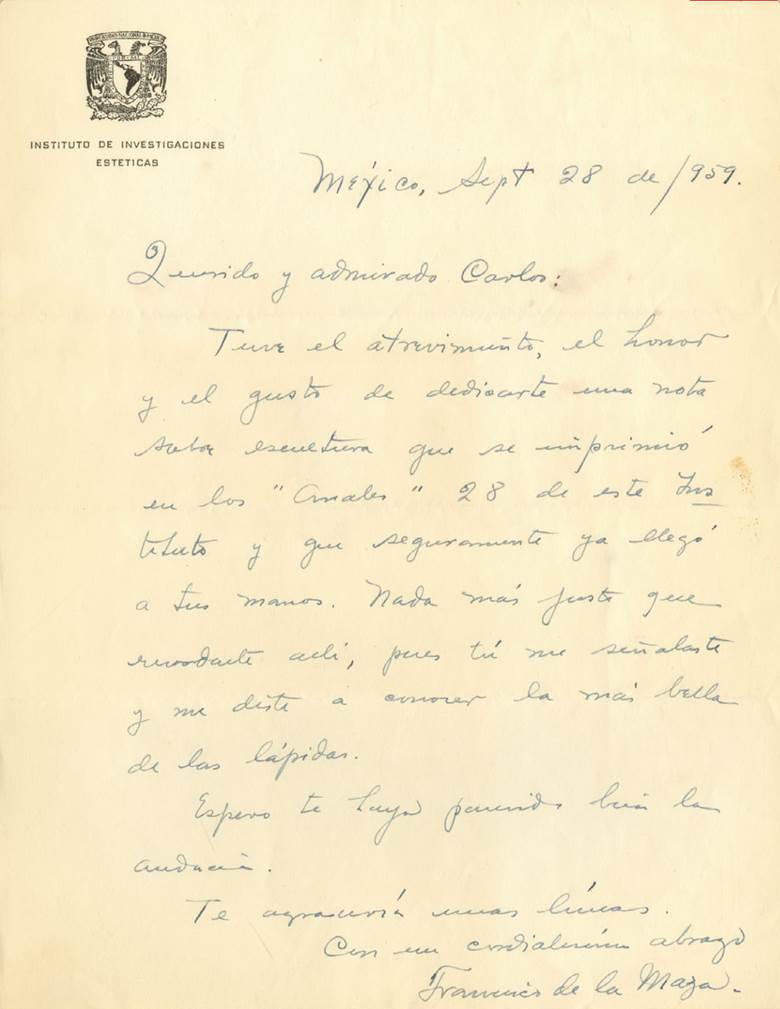 INSTITUTO DE INVESTIGACIONES
ESTETICAS
México, Sept 28 de 1959.
Querido y admirado Carlos:
Tuve el atrevimiento, el honor
y el gusto de dedicarte una nota
sobre escultura que se imprimió
en los "Anales" 28 de este Ins
tituto y que seguramente ya llegó
a tus manos. Nada más justo que
recordarte allí, pues tú me señalaste
y me diste a conocer la más bella
de las lápidas.
Espero te haya parecido bien la
audacia.
Te agradecería unas líneas.
Con un cordialísimo abrazo
Francisco de la Maza.